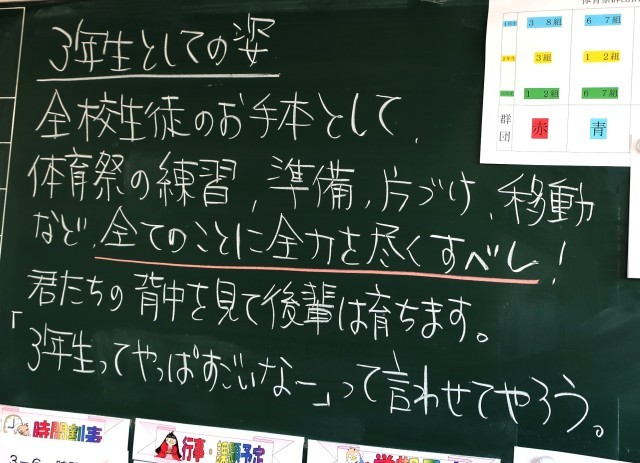 3年生としての姿
全校生徒のお手本として、
体育祭の練習、準備、片づけ、移動
など、全てのことに全力を尽くすべし!
君たちの背中を見て後輩は育ちます。
「3年生ってやっぱすごいなー」って言わせてやろう。
3 8組 6 7組
3組 1 2組
1 2組 6 7組
群団 赤 青
時間割表
行事・課題予定